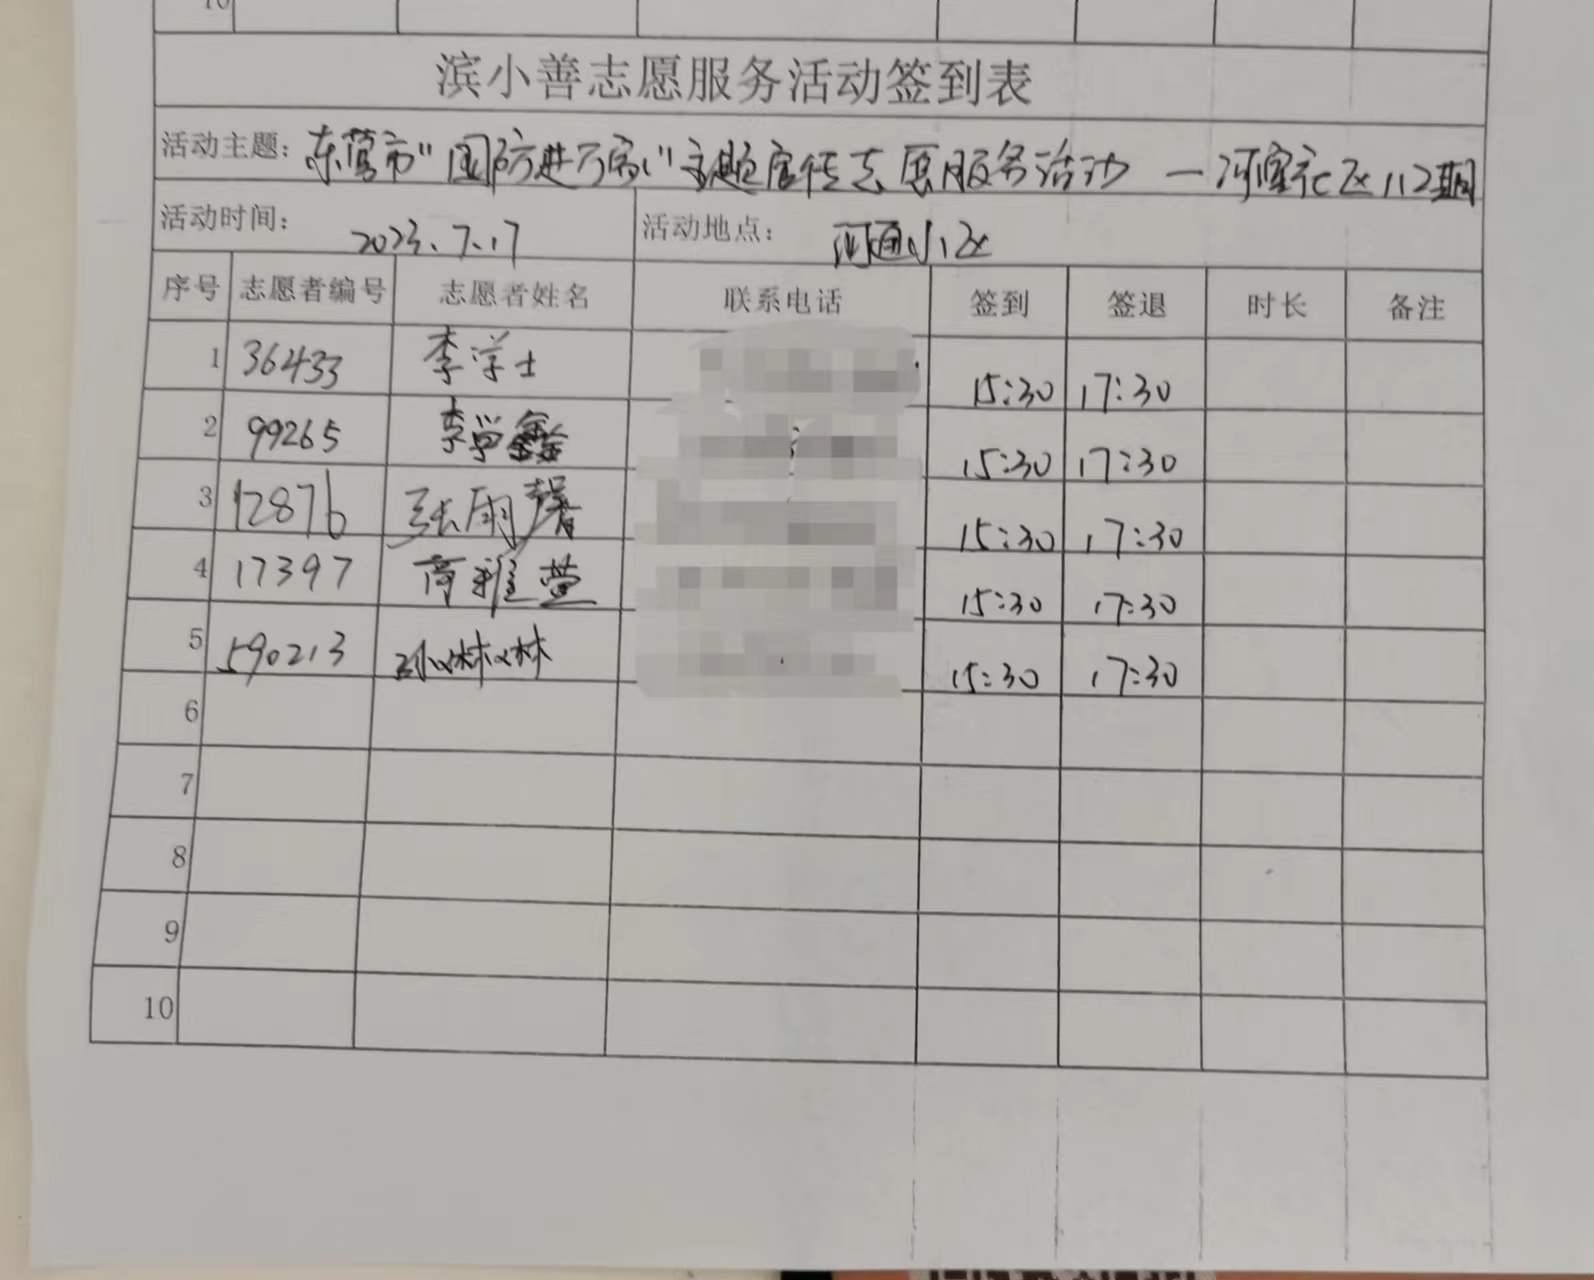 10
滨小善志愿服务活动签到表
活动主题: 东营市"国防进万家"主题宣传志愿服务活动 — 河宫社区112期
活动时间: 2023.7.17 活动地点: 河通小区
序号 志愿者编号 志愿者姓名 联系电话 签到 签退 时长 备注
1 36433 李学士 15:30 17:30
2 99265 李学鑫 15:30 17:30
3 12876 张雨馨 15:30 17:30
4 17397 商雅萱 15:30 17:30
5 590213 孙林林 15:30 17:30
6
7
8
9
10